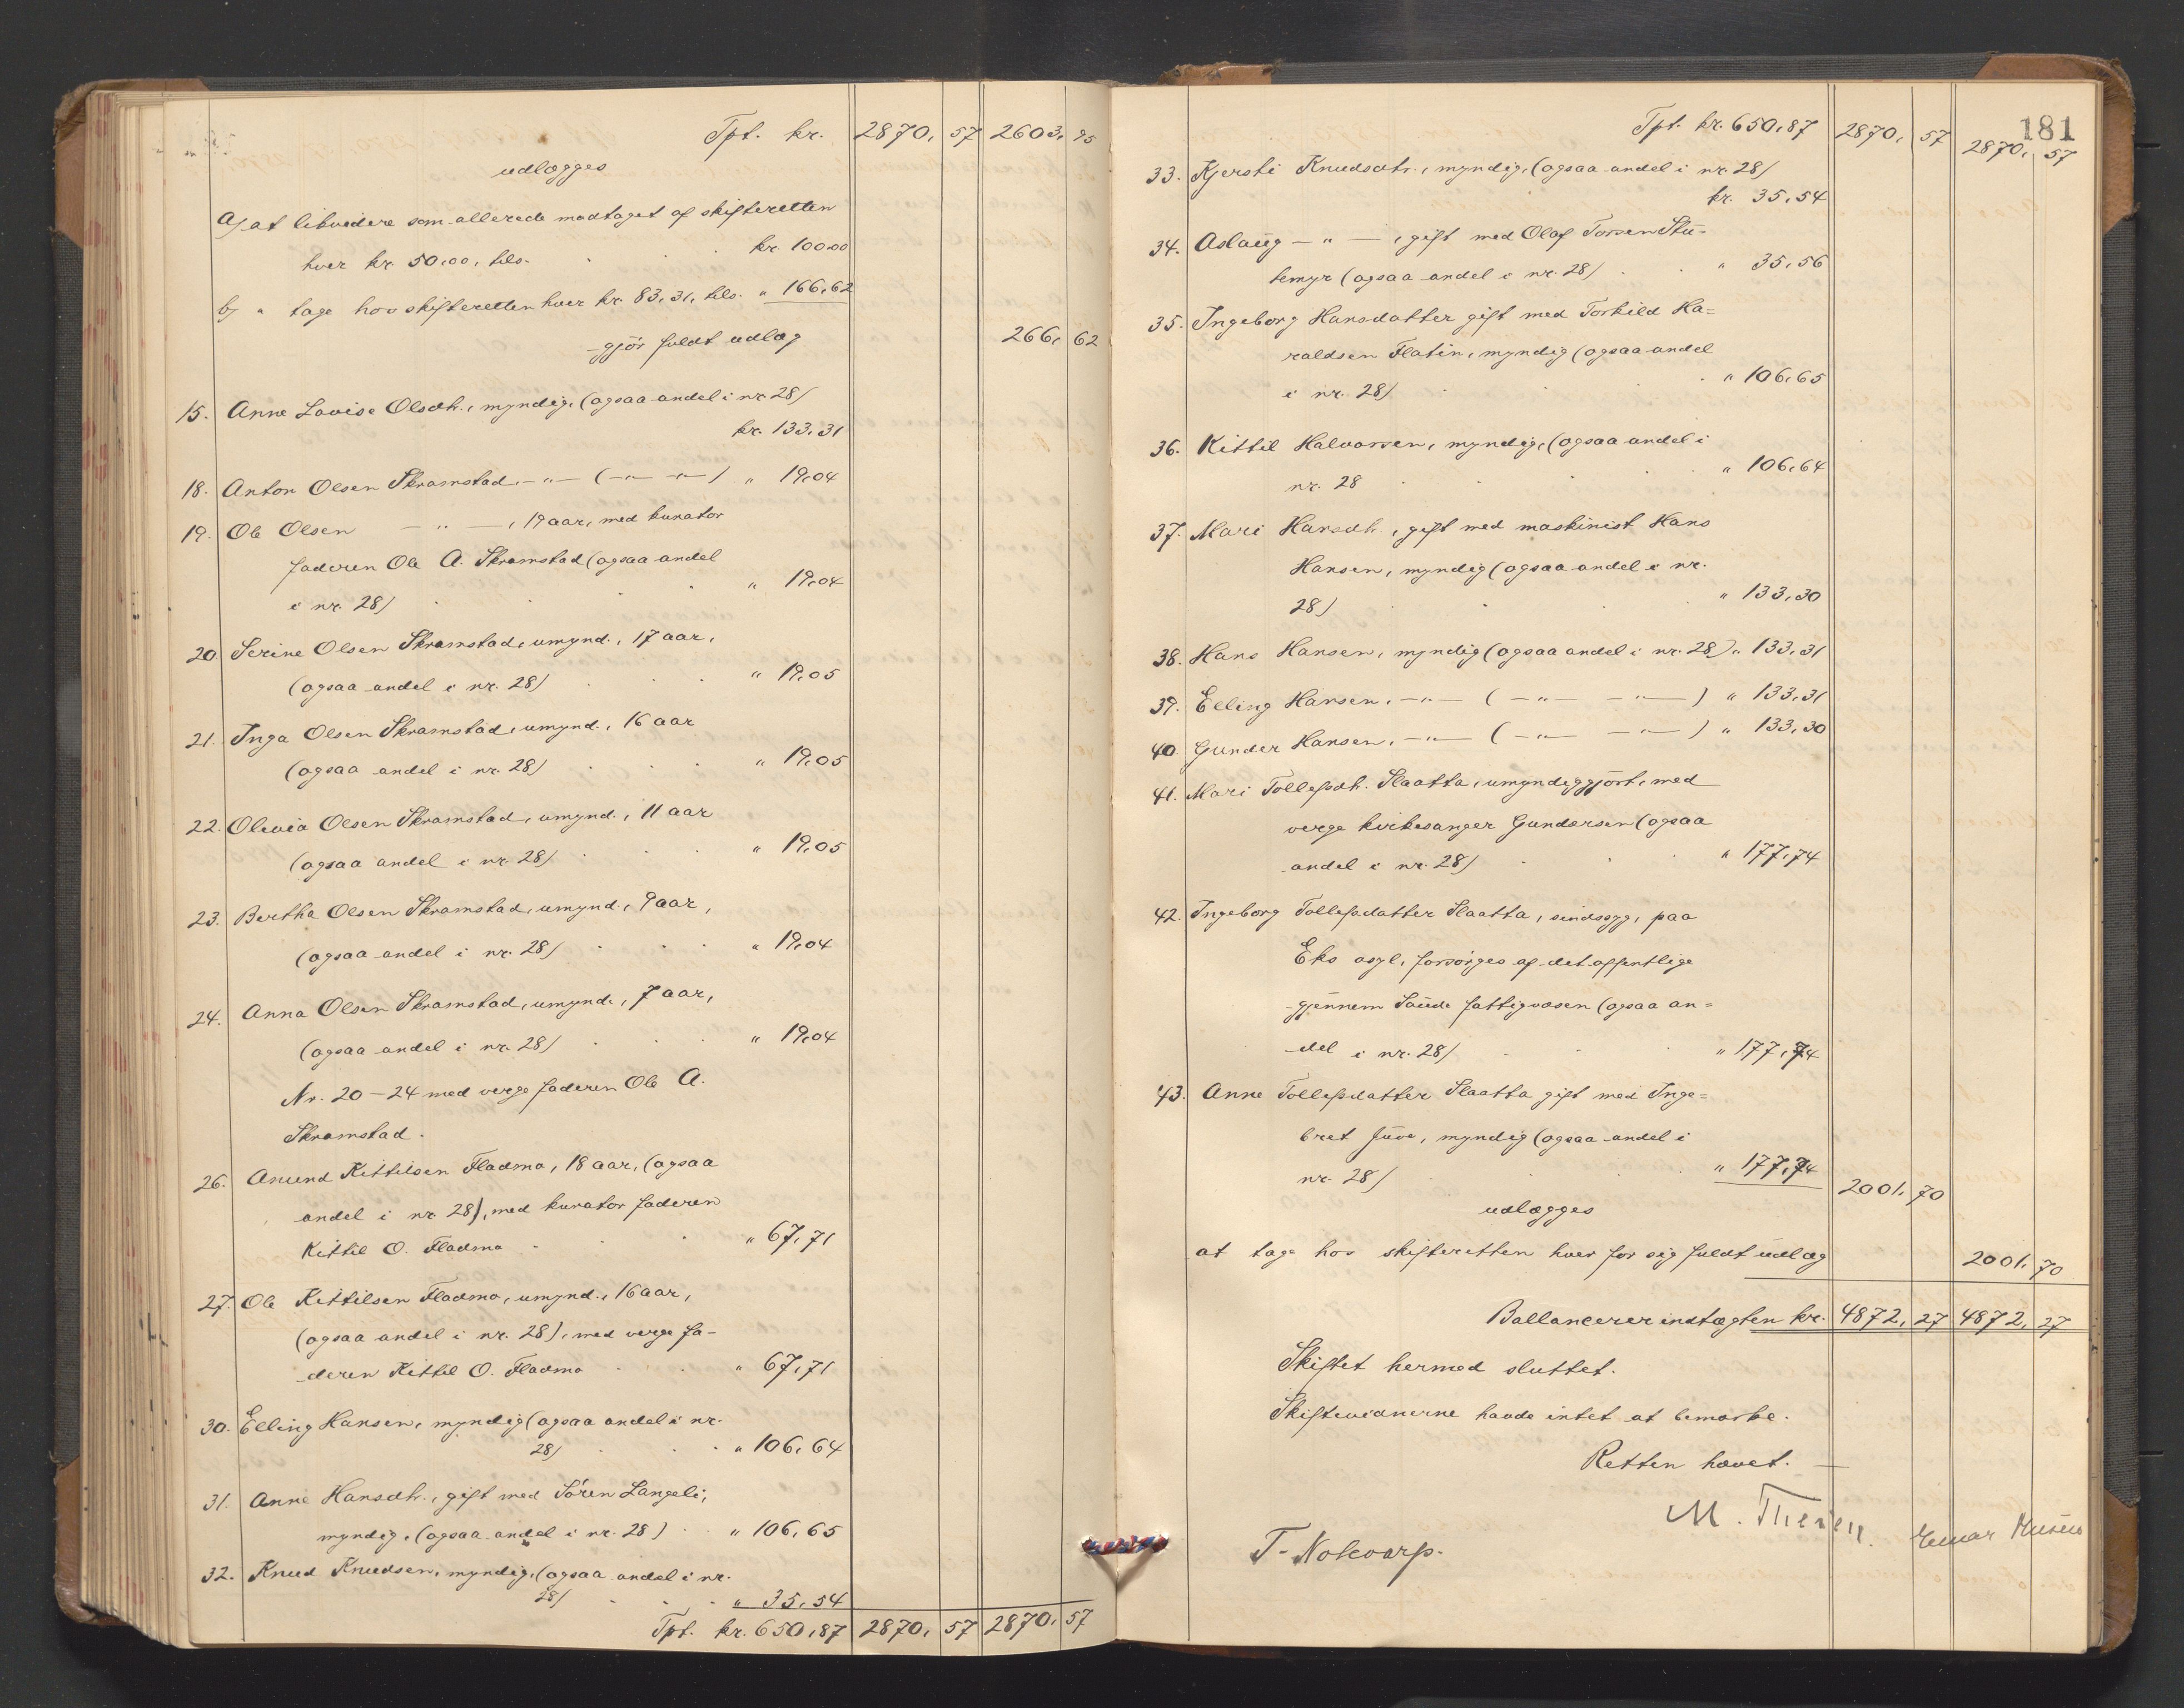 Tpt. kr. 2870, 57 2603, 95
udlægges
a/ at likvidere som allerede modtaget af skifteretten
hver kr. 50,00, tils. kr. 100,00
b/ " tage hos skifteretten hver kr. 83,31, tils. " 166,62
gjør fuldt udlæg 266, 62
15. Anne Lovise Olsdtr., myndig, (ogsaa andel i nr. 28)
kr. 133,31
18. Anton Olsen Skramstad, –"– (–"– –"–) " 19,04
19. Ole Olsen – " –, 19 aar, med kurator
faderen Ole A. Skramstad (ogsaa andel
i nr. 28) " 19,04
20. Serine Olsen Skramstad, umynd., 17 aar,
(ogsaa andel i nr. 28) " 19,05
21. Inga Olsen Skramstad, umynd., 16 aar
(ogsaa andel i nr. 28) " 19,05
22. Olevia Olsen Skramstad, umynd., 11 aar
(ogsaa andel i nr. 28) " 19,05
23. Bertha Olsen Skramstad, umynd., 9 aar,
(ogsaa andel i nr. 28) " 19,04
24. Anna Olsen Skramstad, umynd., 7 aar,
(ogsaa andel i nr. 28) " 19,04
Nr. 20–24 med verge faderen Ole A.
Skramstad.
26. Anund Kittilsen Fladmo, 18 aar, (ogsaa
andel i nr. 28), med kurator faderen
Kittil O. Fladmo " 67,71
27. Ole Kittilsen Fladmo, umynd., 16 aar,
(ogsaa andel i nr. 28), med verge fa-
deren Kittil O. Fladmo " 67,71
30. Elling Hansen, myndig (ogsaa andel i nr.
28) " 106,64
31. Anne Hansdtr., gift med Søren Langeli,
myndig, (ogsaa andel i nr. 28) " 106,65
32. Knud Knudsen, myndig, (ogsaa andel i nr.
28) " 35,54
Tpt. kr. 650,87 2870, 57 2870, 57
181
Tpt. kr. 650,87 2870, 57 2870, 57
33. Kjersti Knudsdtr., myndig, (ogsaa andel i nr. 28)
kr. 35,54
34. Aslaug – " –, gift med Olaf Torsen Stu-
temyr (ogsaa andel i nr. 28) " 35,56
35. Ingeborg Hansdatter gift med Torkild Ha=
raldsen Flatin, myndig (ogsaa andel
i nr. 28) " 106,65
36. Kittil Halvorsen, myndig, (ogsaa andel i
nr. 28 " 106,64
37. Mari Hansdtr., gift med maskinist Hans
Hansen, myndig (ogsaa andel i nr.
28) " 133,30
38. Hans Hansen, myndig (ogsaa andel i nr. 28) " 133,31
39. Elling Hansen, –"– (–"– –"–) " 133,31
40. Gunder Hansen, –"– (–"– –"–) " 133,30
41. Mari Tollefsdtr. Slaatta, umyndiggjort, med
verge kirkesanger Gundersen (ogsaa
andel i nr. 28) " 177,74
42. Ingeborg Tollefsdatter Slaatta, sindssyg, paa
Eks asyl, forsørges af det offentlige
gjennem Saude fattigvæsen (ogsaa an=
del i nr. 28) " 177,74
43. Anne Tollefsdatter Slaatta gift med Inge=
bret Juve, myndig (ogsaa andel i
nr. 28) " 177,74 2001, 70
udlægges
at tage hos skifteretten hver for sig fuldt udlæg 2001, 70
Ballancerer indtægten kr. 4872, 27 4872, 27
Skiftet hermed sluttet.
Skiftevidnerne havde intet at bemærke.
Retten hævet. –
M.
T. Einar